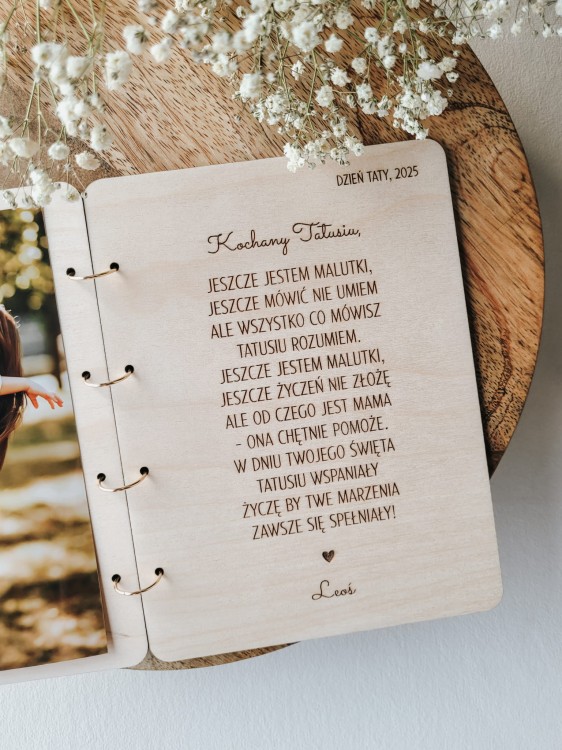 DZIEŃ TATY, 2025
Kochany Tatusiu,
JESZCZE JESTEM MALUTKI,
JESZCZE MÓWIĆ NIE UMIEM
ALE WSZYSTKO CO MÓWISZ
TATUSIU ROZUMIEM.
JESZCZE JESTEM MALUTKI,
JESZCZE ŻYCZEŃ NIE ZŁOŻĘ
ALE OD CZEGO JEST MAMA
- ONA CHĘTNIE POMOŻE.
W DNIU TWOJEGO ŚWIĘTA
TATUSIU WSPANIAŁY
ŻYCZĘ BY TWE MARZENIA
ZAWSZE SIĘ SPEŁNIAŁY!
Leoś